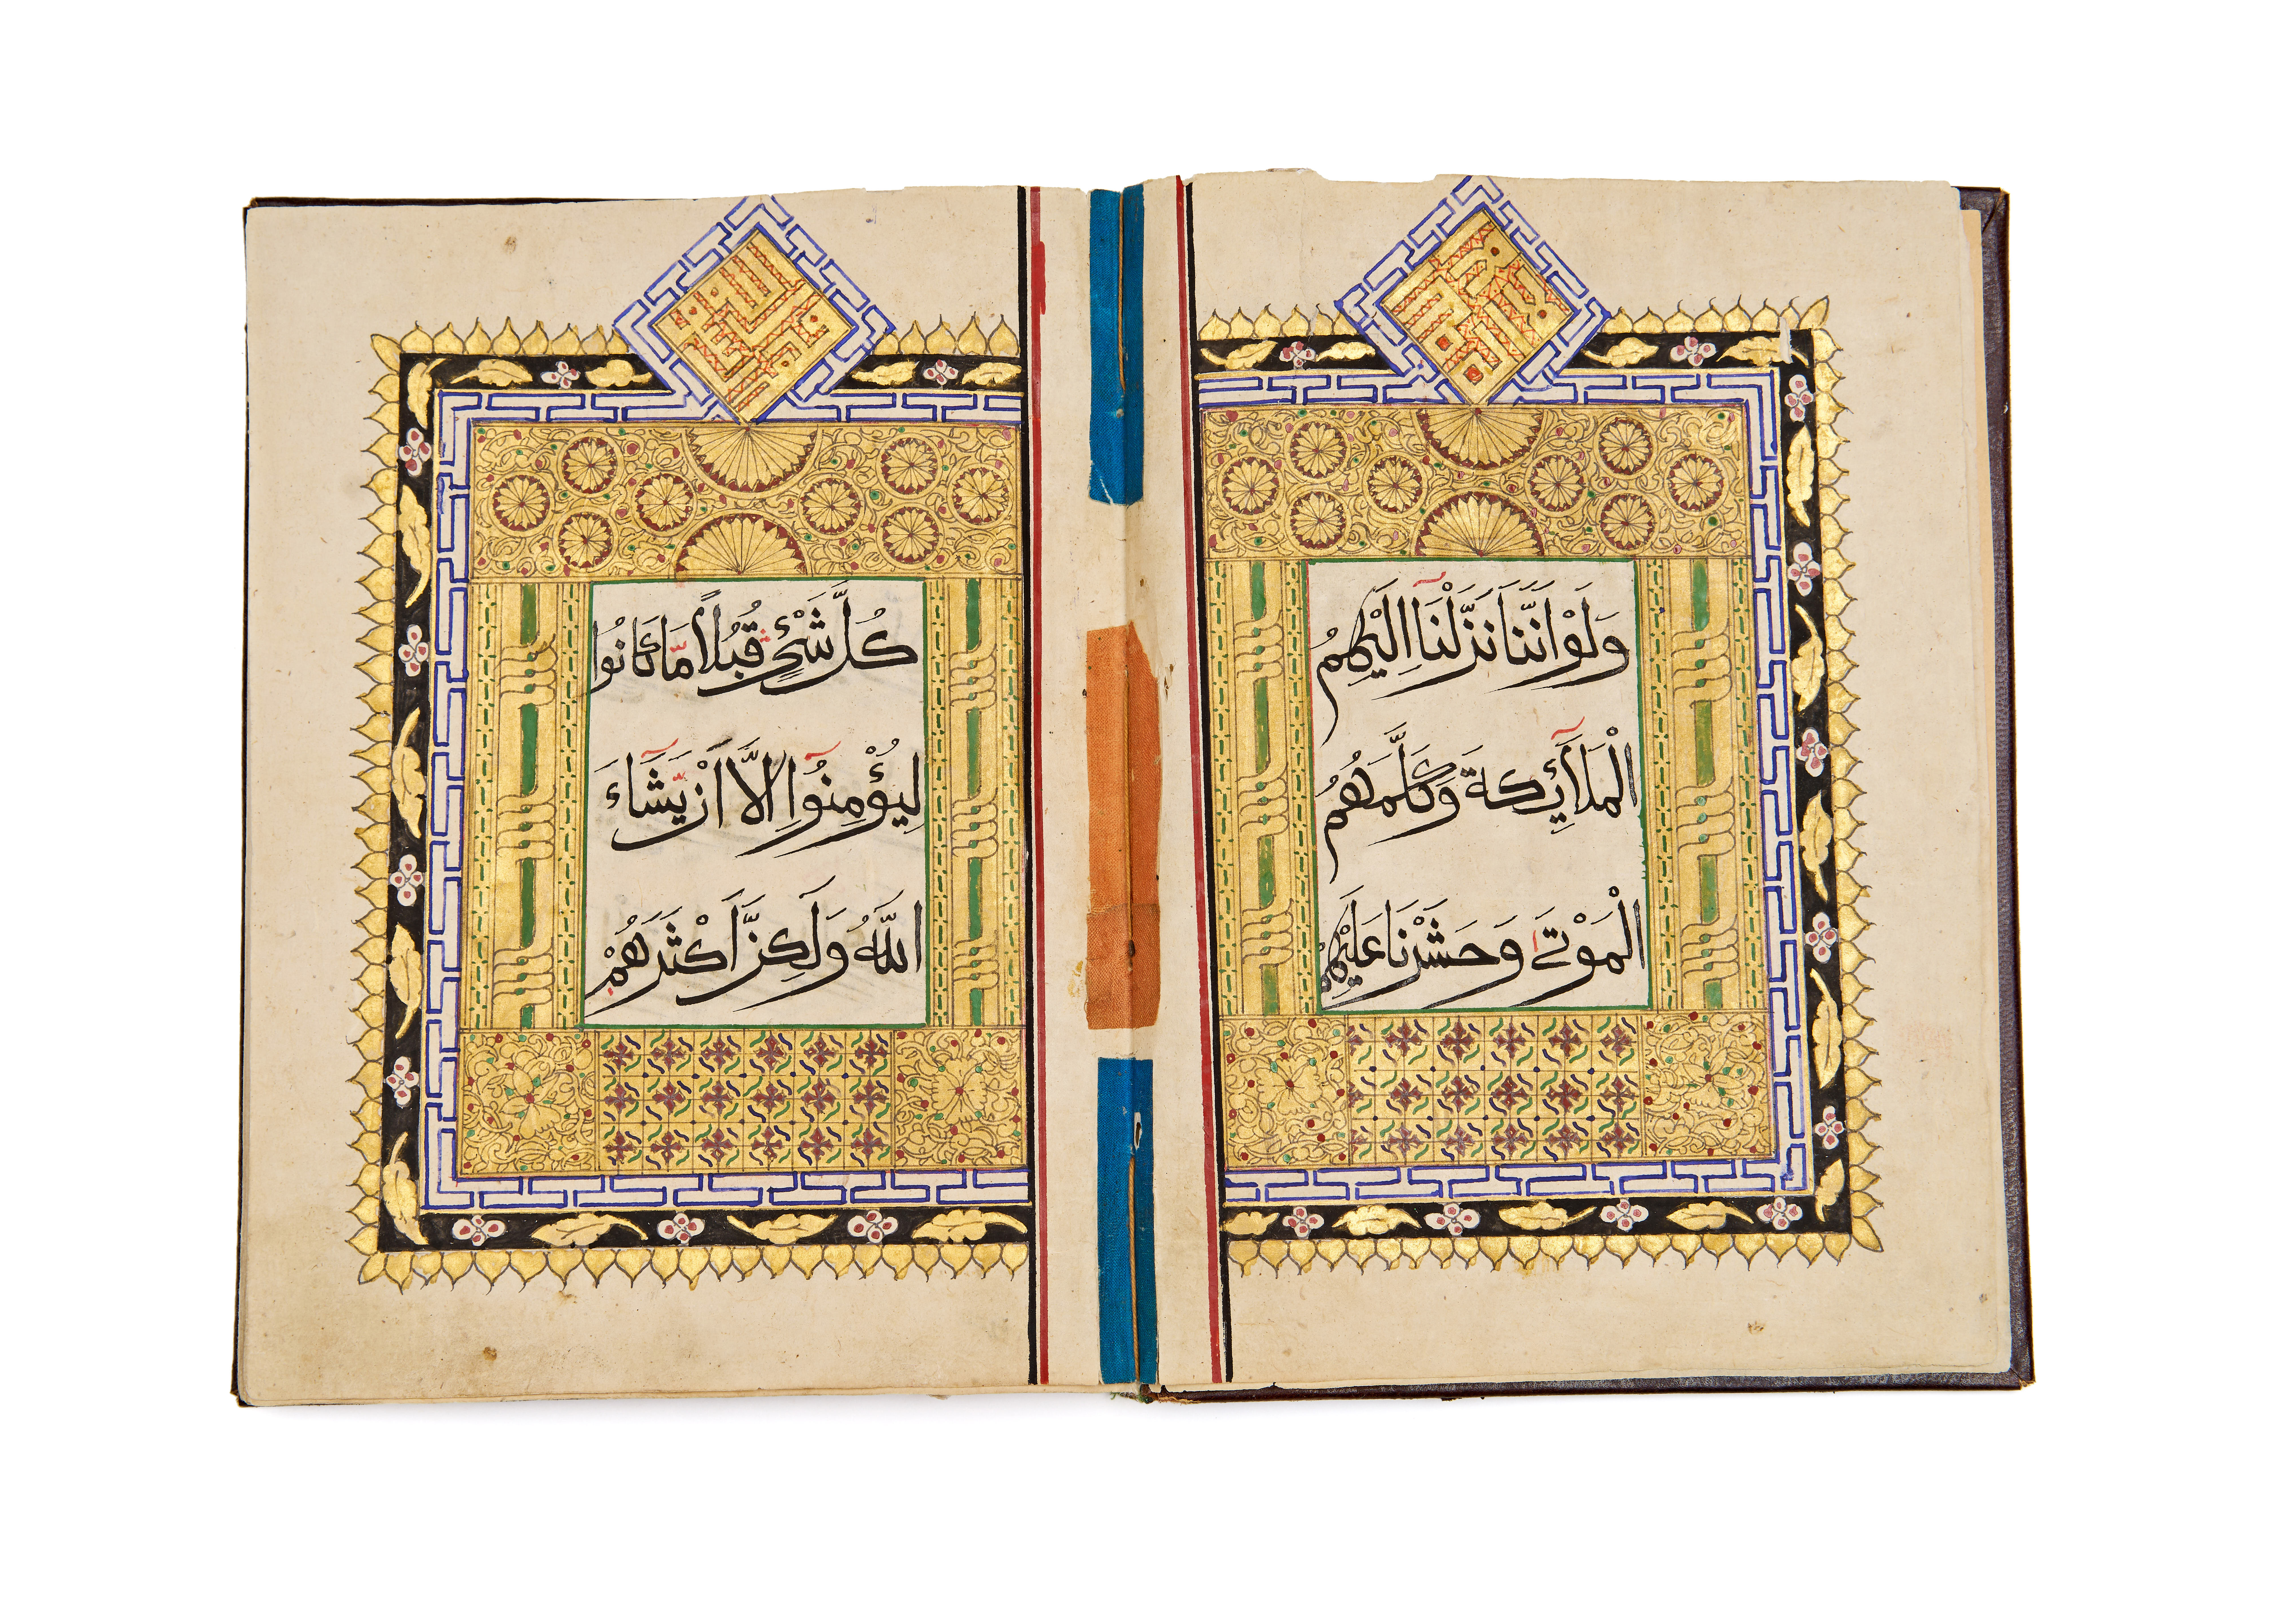 وَلَوْ اَنَّنَا نَزَّلْنَآ اِلَيْهِمُ
الْمَلَآئِكَةَ وَكَلَّمَهُمُ
الْمَوْتٰى وَحَشَرْنَا عَلَيْهِمْ
كُلَّ شَيْءٍ قُبُلًا مَّا كَانُوا
لِيُؤْمِنُوٓا اِلَّآ اَنْ يَّشَآءَ
اللّٰهُ وَلٰكِنَّ اَكْثَرَهُمْ